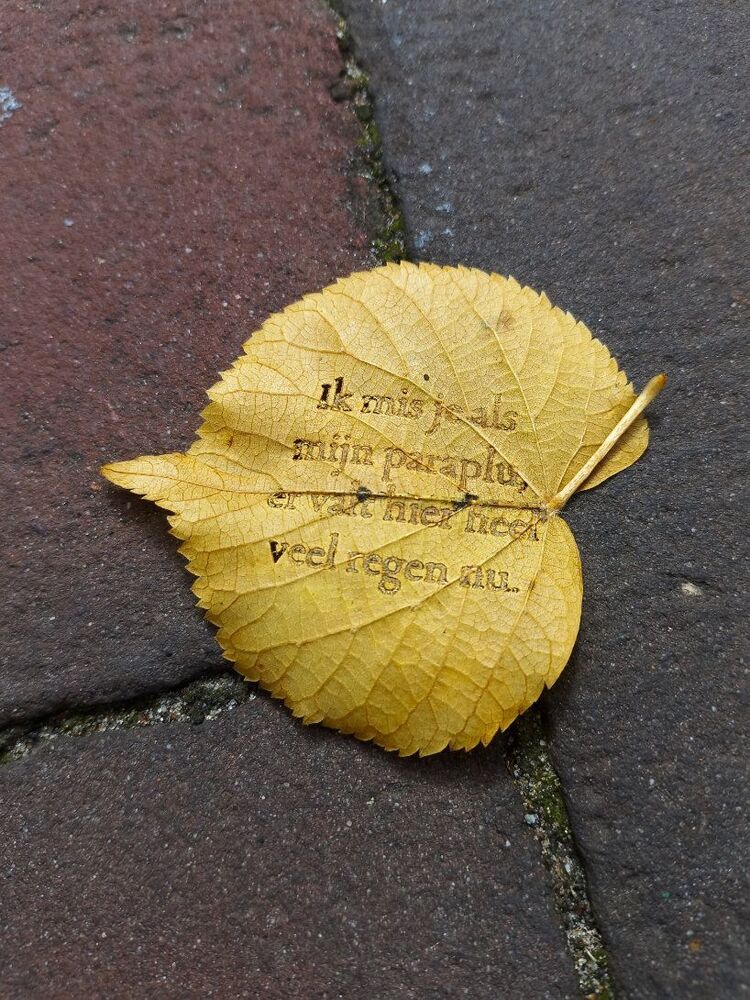 Ik mis je als
mijn paraplu,
er valt hier heel
veel regen nu..